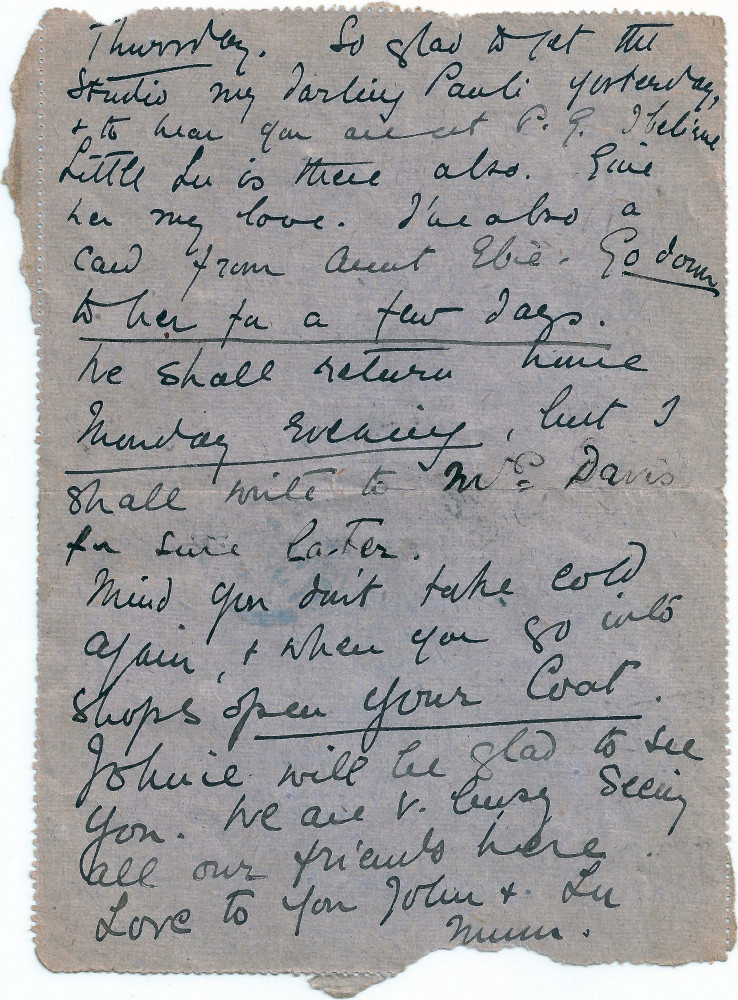 Thursday. So glad to get the
Studio my darling Pauli yesterday,
& to hear you are at P. G. I believe
Little Lu is there also. Give
her my love. I've also a
card from Aunt Elsie. Go down
to her for a few days.
We shall return home
Monday Evening, but I
shall write to Mrs Davis
for sure later.
Mind you don't take cold
again, & when you go into
shops open your Coat.
Johnie will be glad to see
you. We are v. busy seeing
all our friends here.
Love to you John & Lu
Mum.